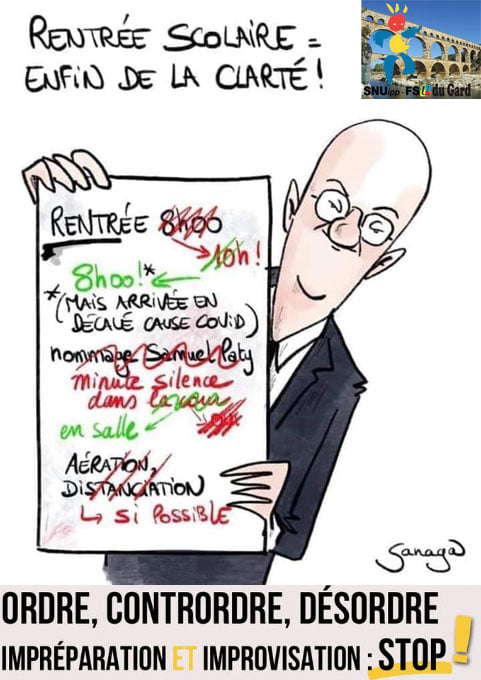 RENTRÉE SCOLAIRE =
ENFIN DE LA CLARTÉ !
SNUipp - FSU du Gard
RENTRÉE 8h00
10h !
8h00!*
*(MAIS ARRIVÉE EN
DÉCALÉ CAUSE COVID)
hommage Samuel Paty
minute silence
dans la cour
en salle
AÉRATION,
DISTANCIATION
↳ Si POSSIBLE
Sanaga
ORDRE, CONTRORDRE, DÉSORDRE
IMPRÉPARATION ET IMPROVISATION : STOP !